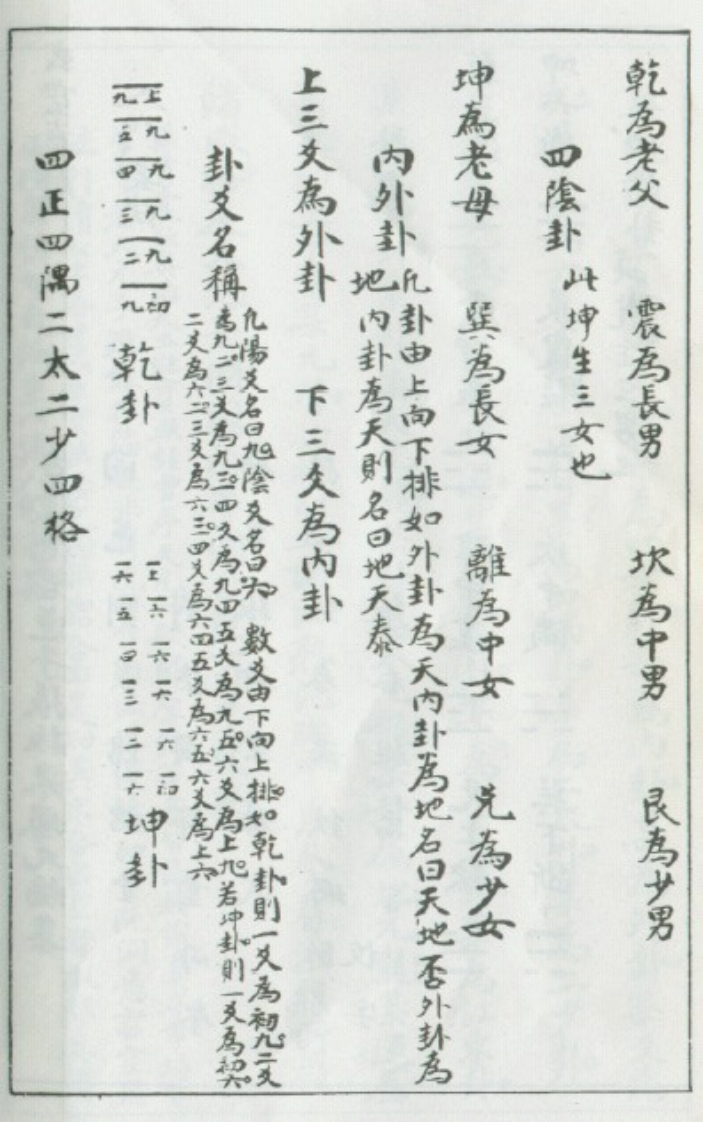 乾為老父 震為長男 坎為中男 艮為少男
四陰卦 此坤生三女也
坤為老母 巽為長女 離為中女 兌為少女
內外卦 凡卦由上向下排如外卦為天內卦為地名曰天地否外卦為
地內卦為天則名曰地天泰
上三爻為外卦 下三爻為內卦
卦爻名稱 凡陽爻名曰九陰爻名曰六 數爻由下向上排如乾卦則一爻為初九二爻
為九二三爻為九三四爻為九四五爻為九五六爻為上九若坤卦則一爻為初六
二爻為六二三爻為六三四爻為六四五爻為六五六爻為上六
上九 九五 九四 九三 九二 初九 乾卦
上六 六五 六四 六三 六二 初六 坤卦
四正四隅二太二少四格